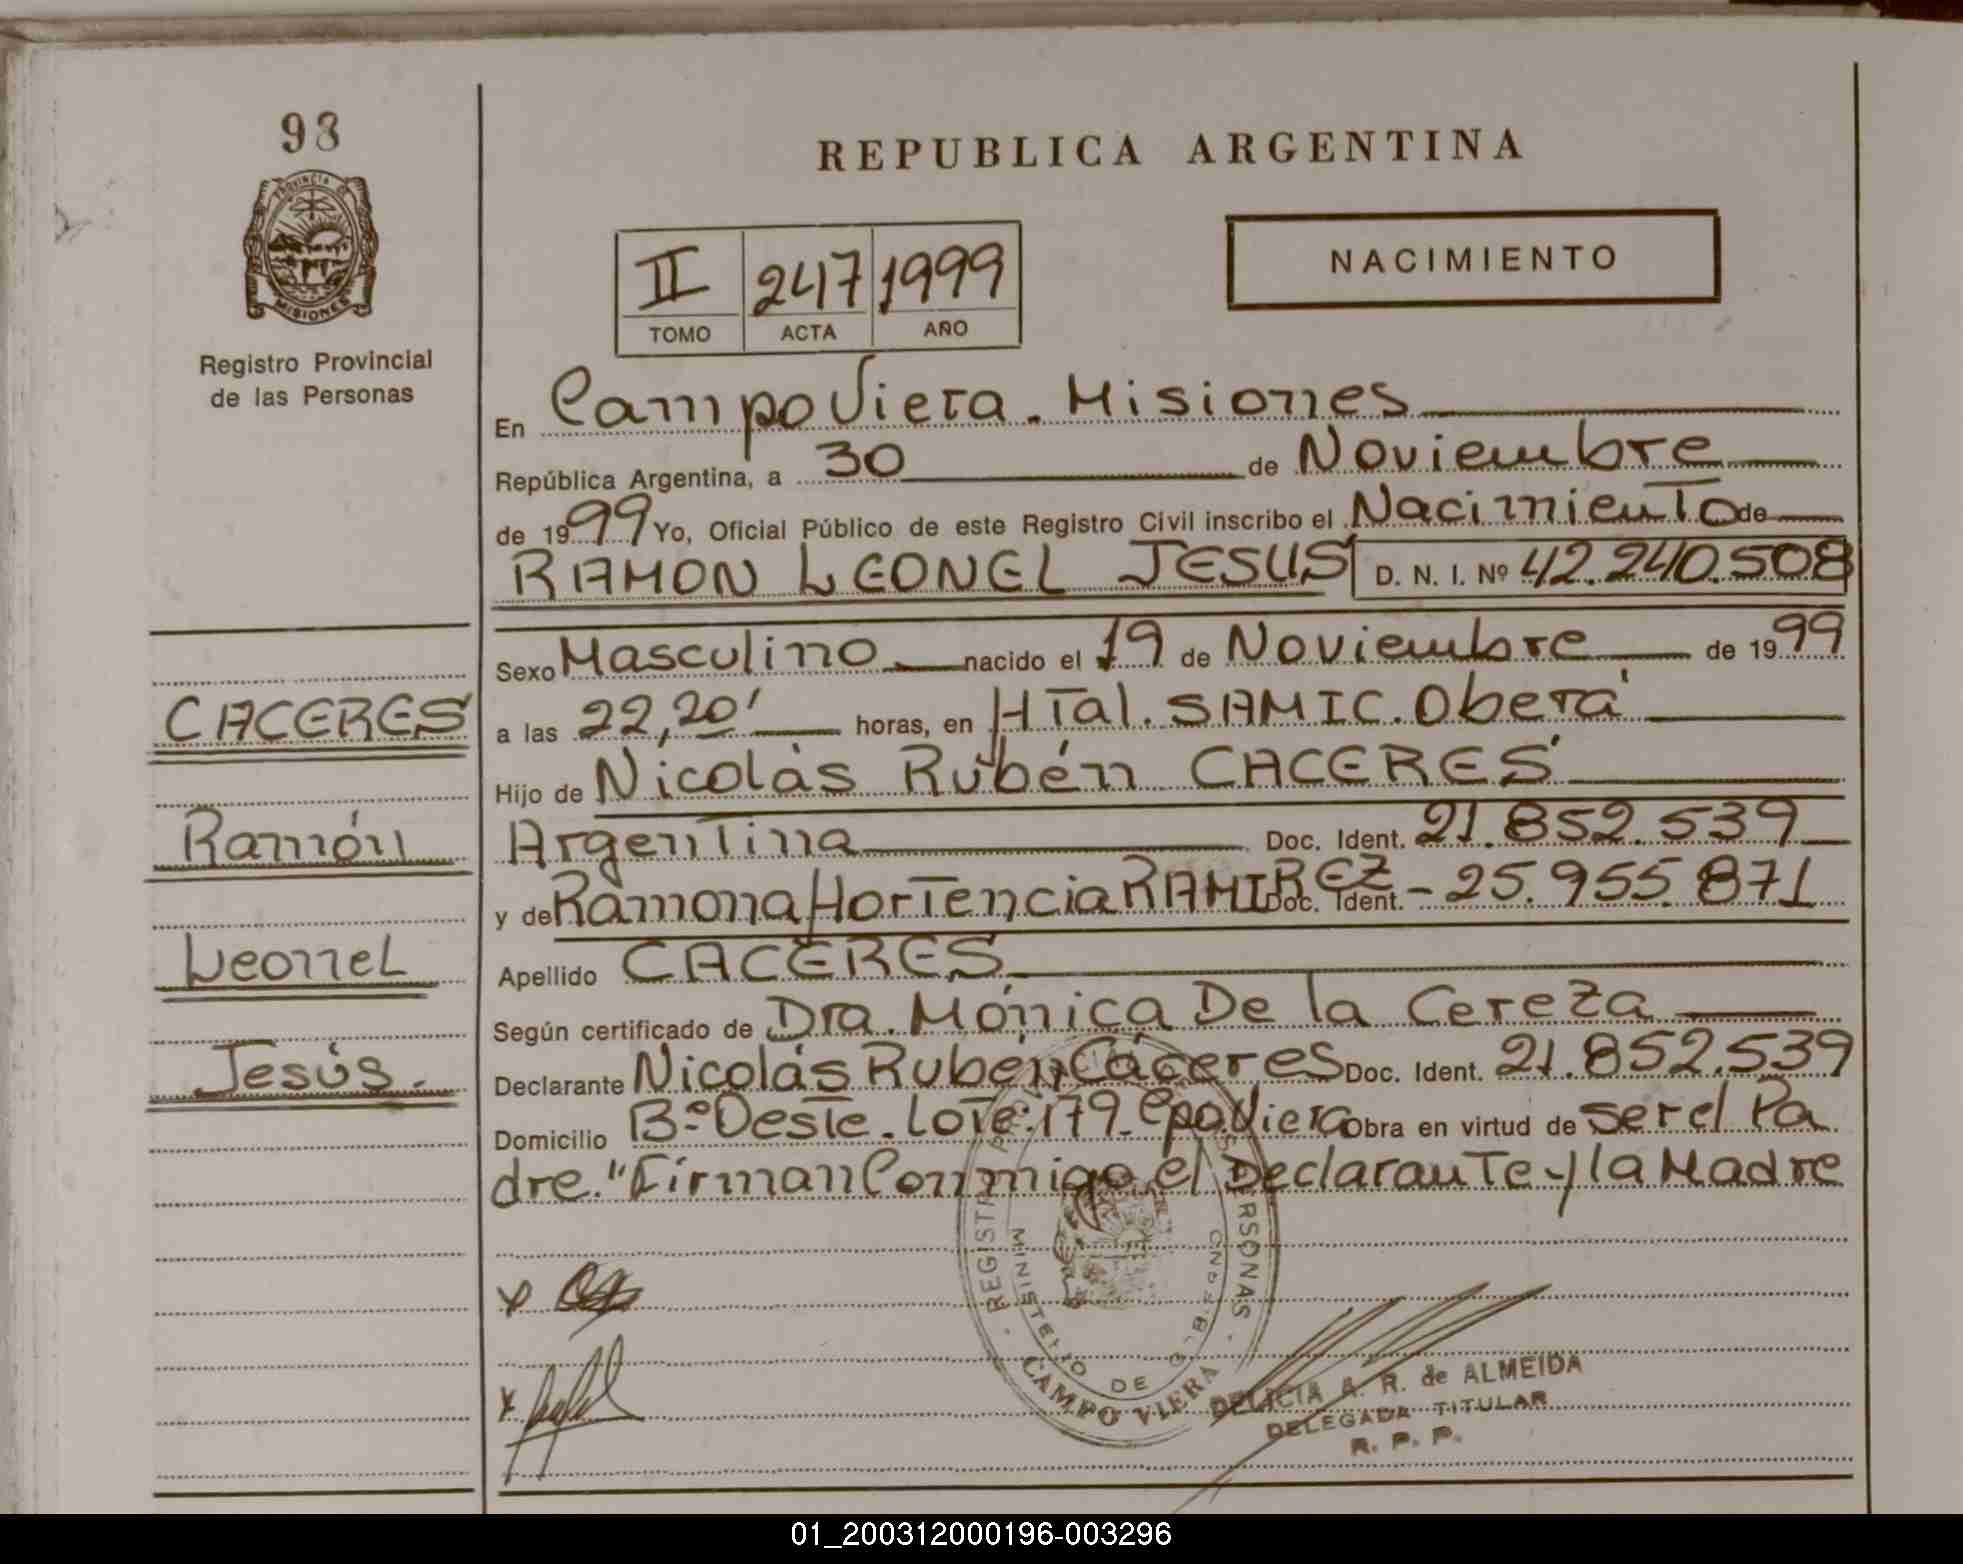 98
REPUBLICA ARGENTINA
PROVINCIA DE
MISIONES
Registro Provincial
de las Personas
II 247 1999
TOMO ACTA AÑO
NACIMIENTO
En Campo Viera. Misiones
República Argentina, a 30 de Noviembre
de 1999 Yo, Oficial Público de este Registro Civil inscribo el Nacimiento de
RAMON LEONEL JESUS D. N. I. Nº 42.240.508
Sexo Masculino nacido el 19 de Noviembre de 1999
a las 22,20' horas, en HTal. SAMIC. Oberá
Hijo de Nicolás Rubén CACERES
Argentina Doc. Ident. 21.852.539
y de Ramona Hortencia RAMIREZ Doc. Ident. - 25.955.871
Apellido CACERES
Según certificado de Dra. Mónica De la Cereza
Declarante Nicolás Rubén Cáceres Doc. Ident. 21.852.539
Domicilio Bº Oeste. Lote: 179. Cpo. Viera Obra en virtud de ser el Pa
dre. "Firman Conmigo el Declarante y la Madre
CACERES
Ramón
Leonel
Jesús.
REGIST PERSONAS
MINISTERIO DE GOB
CAMPO VIERA
DELICIA A. R. de ALMEIDA
DELEGADA TITULAR
R. P. P.
01_200312000196-003296